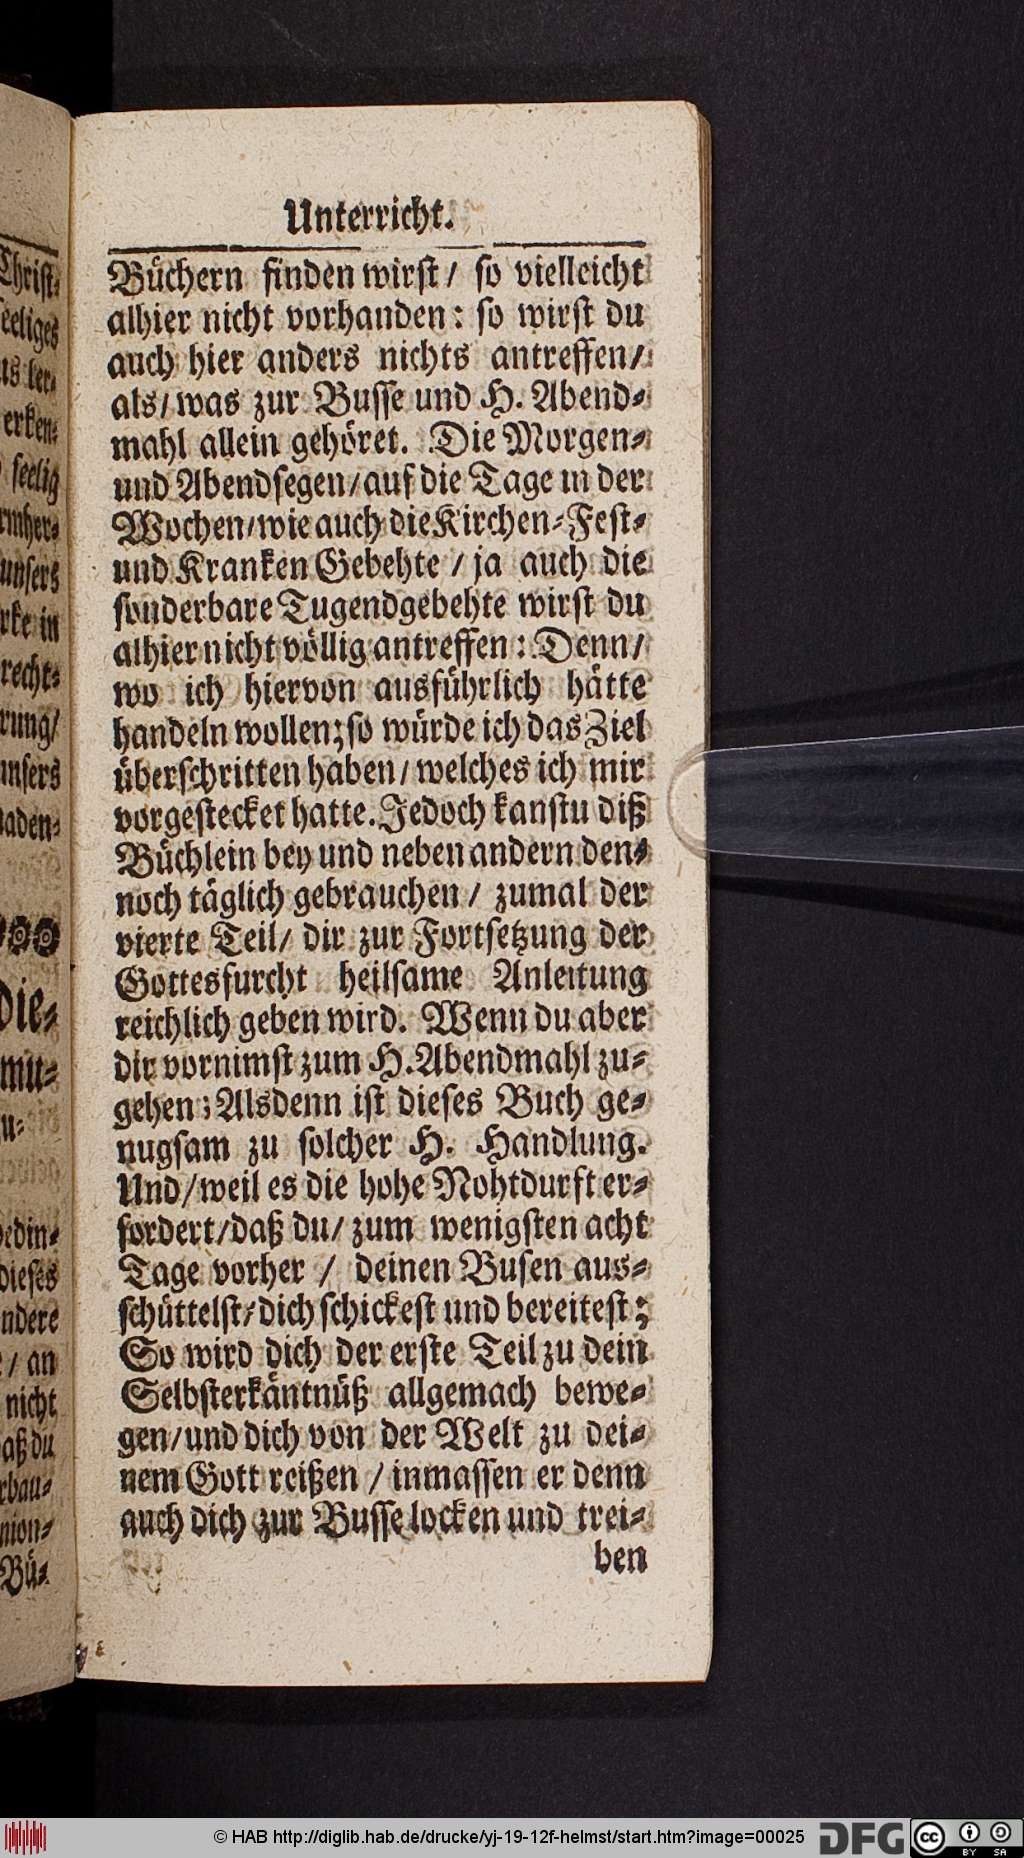 Unterricht.
Büchern finden wirst / so vielleicht
alhier nicht vorhanden: so wirst du
auch hier anders nichts antreffen/
als/ was zur Busse und H. Abend-
mahl allein gehöret. Die Morgen-
und Abendsegen/ auf die Tage in der
Wochen/ wie auch die Kirchen-Fest-
und Kranken Gebehte / ja auch die
sonderbare Tugendgebehte wirst du
alhier nicht völlig antreffen: Denn/
wo ich hiervon ausführlich hätte
handeln wollen; so würde ich das Ziel
überschritten haben/ welches ich mir
vorgestecket hatte. Jedoch kanstu diß
Büchlein bey und neben andern den-
noch täglich gebrauchen / zumal der
vierte Teil/ dir zur Fortsetzung der
Gottesfurcht heilsame Anleitung
reichlich geben wird. Wenn du aber
dir vornimst zum H. Abendmahl zu-
gehen; Alsdenn ist dieses Buch ge-
nugsam zu solcher H. Handlung.
Und/ weil es die hohe Nohtdurft er-
fordert/ daß du/ zum wenigsten acht
Tage vorher / deinen Busen aus-
schüttelst/ dich schickest und bereitest;
So wird dich der erste Teil zu dein
Selbsterkäntnüß allgemach bewe-
gen/ und dich von der Welt zu dei-
nem Gott reißen / inmassen er denn
auch dich zur Busse locken und trei-
ben
Christ-
seeliges
erken-
seelig
unsers
rke in
recht-
rung/
unsers
die-
mu-
dieses
ndere
/ an
nicht
aß du
Bü-
© HAB http://diglib.hab.de/drucke/yj-19-12f-helmst/start.htm?image=00025
DFG
cc
BY SA